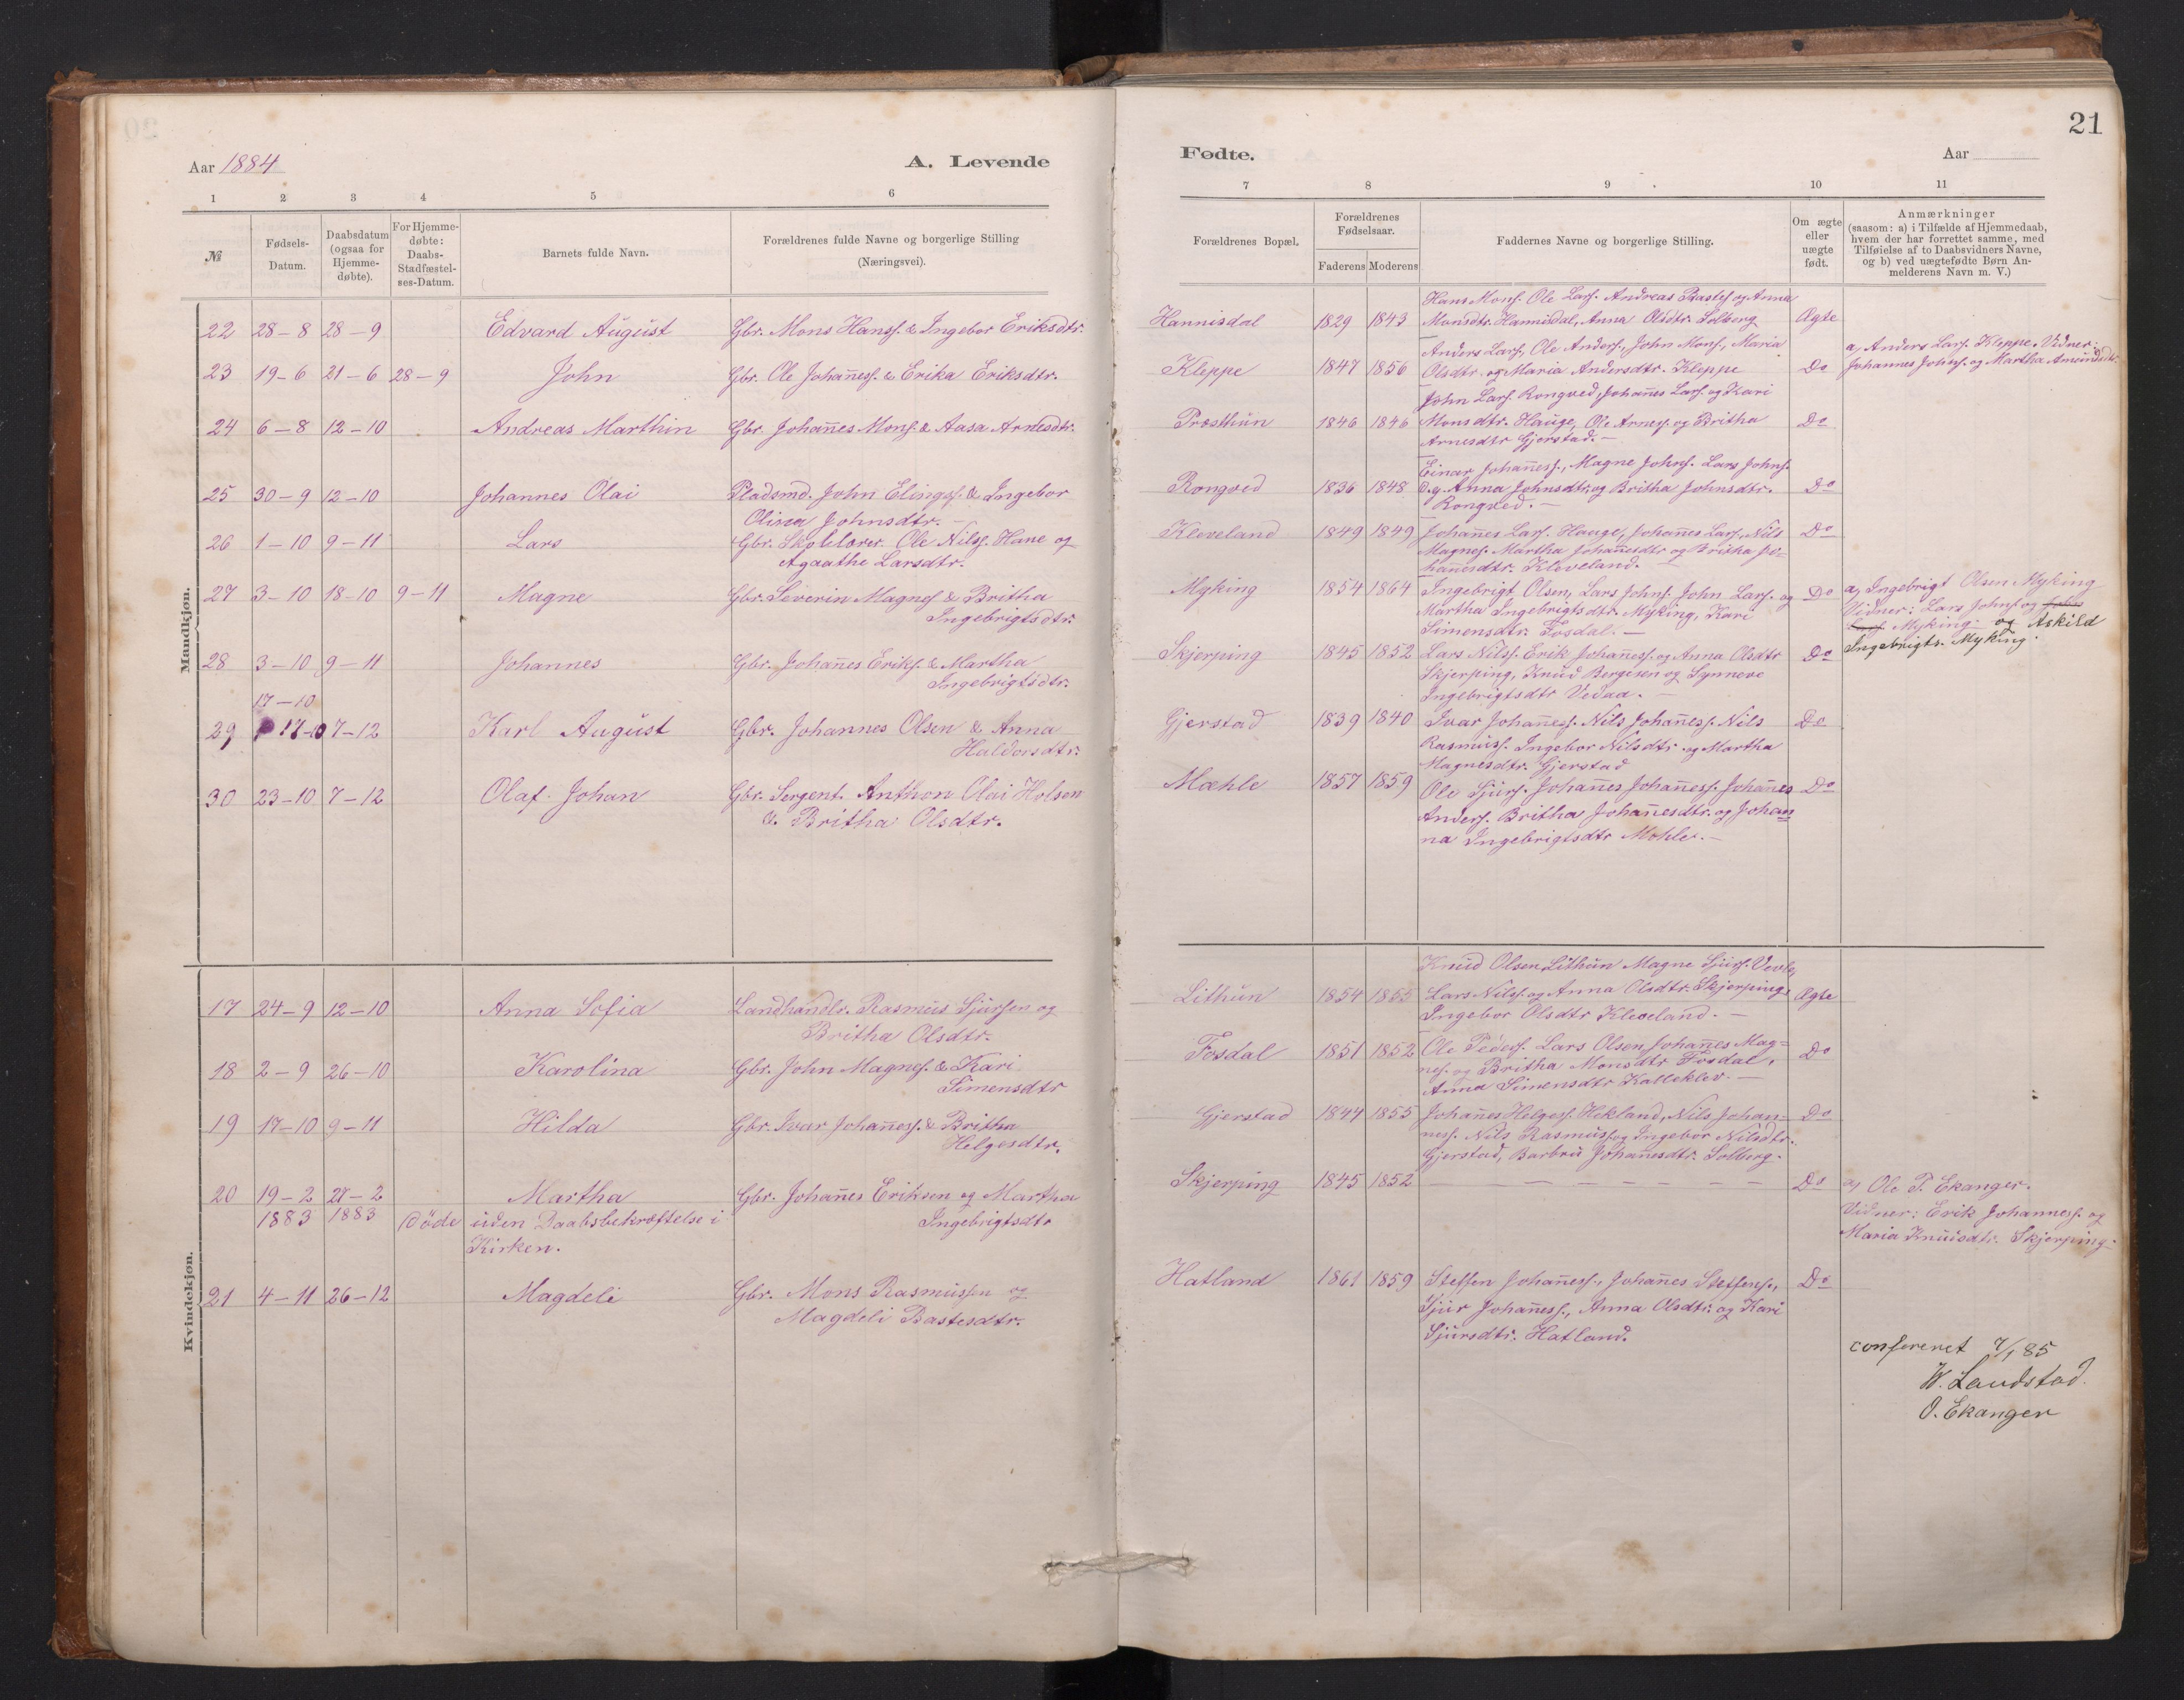 Aar 1884
A. Levende
1 2 3 4 5 6
№
Fødsels-
Datum.
Daabsdatum
(ogsaa for
Hjemme-
døbte).
For Hjemme-
døbte:
Daabs-
Stadfæstel-
ses-Datum.
Barnets fulde Navn.
Forældrenes fulde Navne og borgerlige Stilling
(Næringsvei).
Mandkjøn.
22 28-8 28-9 Edvard August Gbr. Mons Hanss. & Ingebor Eriksdtr.
23 19-6 21-6 28-9 John Gbr. Ole Johañess. & Erika Eriksdtr.
24 6-8 12-10 Andreas Marthin Gbr. Johañes Mons. & Aasa Arnesdtr.
25 30-9 12-10 Johannes Olai Pladsmd. John Elingss. & Ingebor
Olina Johnsdtr. -
26 1-10 9-11 Lars Gbr. Skolelærer Ole Nilss. Hane og
Agaathe Larsdtr.
27 3-10 18-10 9-11 Magne Gbr. Severin Magness. & Britha
Ingebrigtsdtr.
28 3-10 9-11 Johannes Gbr. Johañes Erikss. & Martha
Ingebrigtsdtr.
17-10
29 17-10 7-12 Karl August Gbr. Johannes Olsen & Anna
Haldorsdtr.
30 23-10 7-12 Olaf Johan Gbr. Sergent. Anthon Olai Holsen
& Britha Olsdtr.
Kvindekjøn.
17 24-9 12-10 Anna Sofia Landhandlr. Rasmus Sjursen og
Britha Olsdtr.
18 2-9 26-10 Karolina Gbr. John Magness. & Kari
Simensdtr
19 17-10 9-11 Hilda Gbr. Ivar Johañess. & Britha
Helgesdtr.
20 19-2 27-2 Martha Gbr. Johañes Eriksen og Martha
1883 1883 døde uden Daabsbekræftelse i Ingebrigtsdtr
Kirken.
21 4-11 26-12 Magdeli Gbr. Mons Rasmussen og
Magdeli Bastesdtr.
21
Fødte.
Aar
7 8 9 10 11
Forældrenes Bopæl.
Forældrenes
Fødselsaar.
Faderens Moderens
Faddernes Navne og borgerlige Stilling.
Om ægte
eller
uægte
født.
Anmærkninger
(saasom: a) i Tilfælde af Hjemmedaab,
hvem der har forrettet samme, med
Tilføielse af to Daabsvidners Navne,
og b) ved uægtefødte Børn An-
melderens Navn m. V.)
Hans Mons. Ole Lars. Andreas Bastes. og Anna
Hannisdal 1829 1843 Monsdtr. Hannisdal, Anna Olsdtr. Solberg Ægte
Anders Lars., Ole Anders., John Mons., Maria a, Anders Lars. Kleppe. Vidner:
Kleppe 1847 1856 Olsdtr. og Maria Andersdtr. Kleppe Do Johannes Johns. og Martha Amundsdtr.
John Lars. Rongved, Johañes Lars. og Kari
Præsthun 1846 1846 Monsdtr. Hauge, Ole Arnes. og Britha Do
Arnesdtr Gjerstad. -
Einar Johañess., Magne Johns. Lars Johns.
Rongved 1836 1848 d.y. Anna Johnsdtr. og Britha Johnsdtr. Do
Rongved. -
Kleveland 1849 1849 Johañes Lars. Hauge, Johañes Lars., Nils Do
Magnes. Martha Johañesdtr og Britha Jo-
hañesdtr. Kleveland. -
Myking 1854 1864 Ingebrigt Olsen, Lars Johns. John Lars. og Do a, Ingebrigt Olsen Myking
Martha Ingebrigtsdtr. Myking, Kari Vidner: Lars Johns. og
Simensdtr. Fosdal. - Myking. og Askild
Ingebrigts. Myking.
Skjerping 1845 1852 Lars Nilss. Erik Johañess. og Anna Olsdtr Do
Skjerping, Knud Bergesen og Synneve
Ingebrigtsdtr Vedaa. -
Gjerstad 1839 1840 Ivar Johañess. Nils Johañess. Nils Do
Rasmuss. Ingebor Nilsdtr. og Martha
Magnesdtr. Gjerstad
Mæhle 1857 1859 Ole Sjurs. Johañes Johañess. Johañes Do
Anders. Britha Johañesdtr. og Johan
na Ingebrigtsdtr Mæhle. -
Knud Olsen Lithun Magne Sjurs.
Lithun 1854 1855 Lars Nilss. og Anna Olsdtr. Skjerping, Ægte
Ingebor Olsdtr Kleveland. -
Fosdal 1851 1852 Ole Peders. Lars Olsen, Johañes Mag- Do
nes. og Britha Monsdtr Fosdal,
Anna Simensdtr Kalleklev. -
Gjerstad 1844 1855 Johañes Helges. Hekland, Nils Johan- Do
ness. Nils Rasmuss. og Ingebor Nilsdtr.
Gjerstad, Barbru Johañesdtr. Solberg.
Skjerping 1845 1852 - - - - - - - Do a, Ole P. Ekanger.
Vidner: Erik Johanness. og
Maria Knudsdtr. Skjerping.
Hatland 1861 1859 Steffen Johañess., Johañes Steffens., Do
Sjur Johañess., Anna Olsdtr. og Kari
Sjursdtr. Hatland.
confereret 7/1 85
W. Landstad.
O. Ekanger